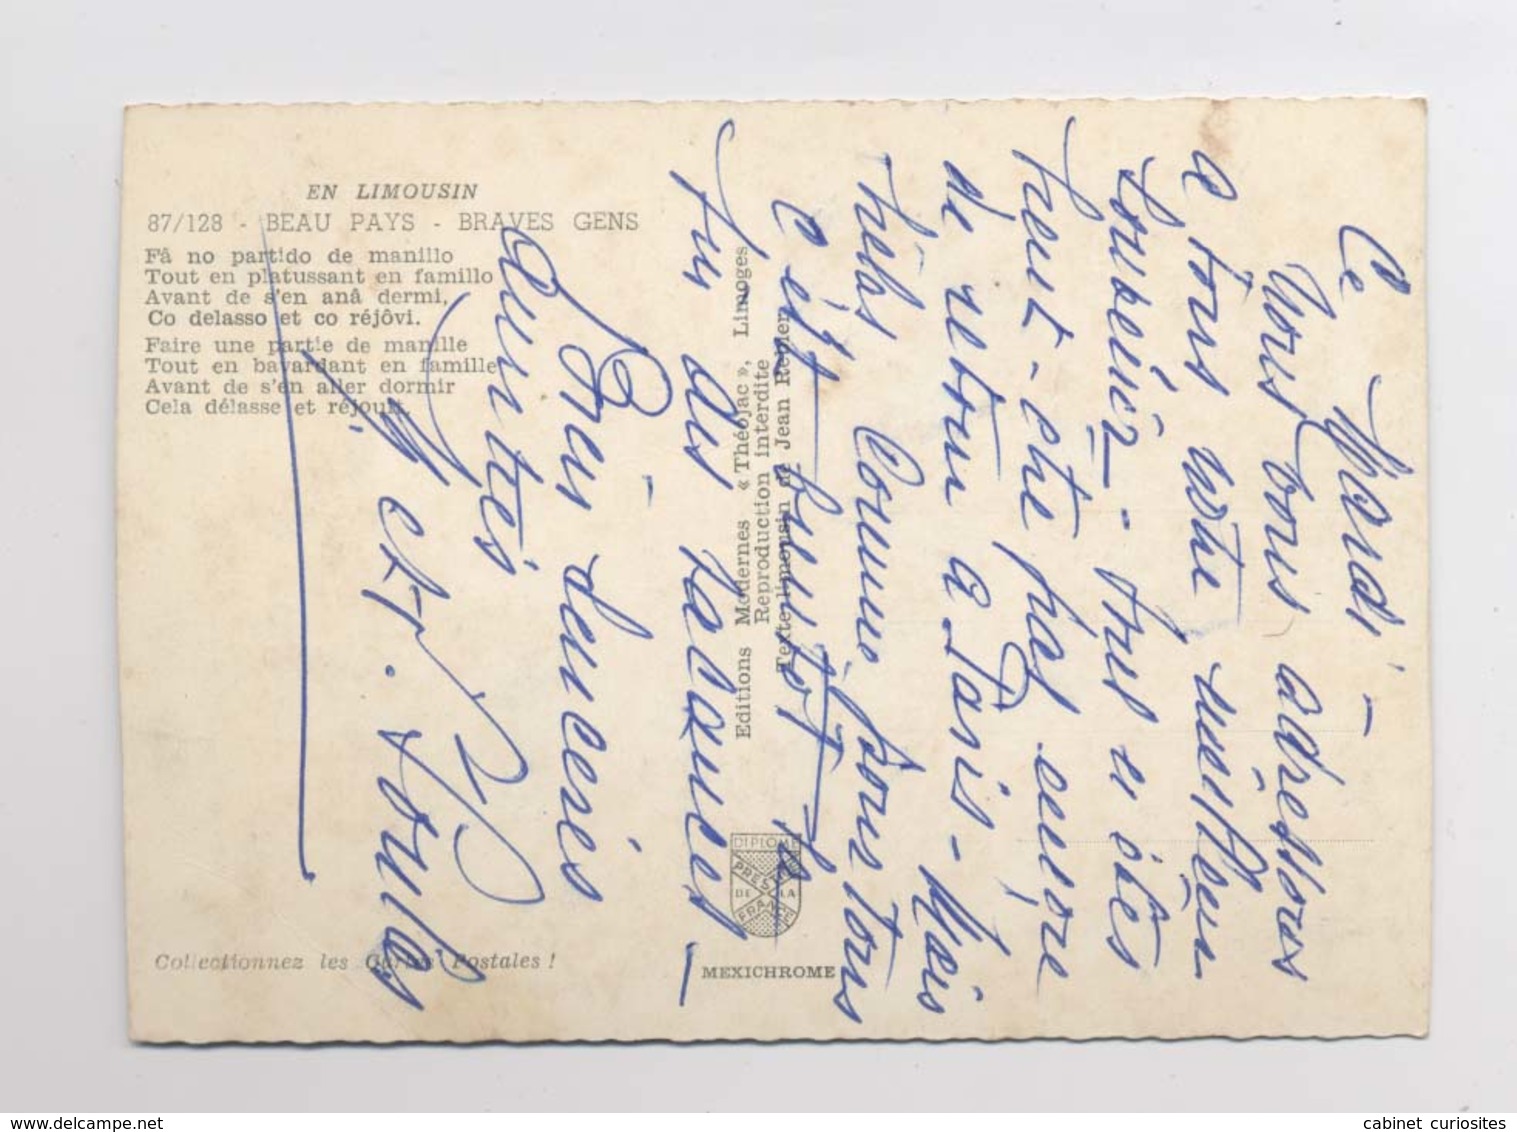 EN LIMOUSIN
87/128 - BEAU PAYS - BRAVES GENS
Fâ no partido de manillo
Tout en platussant en famillo
Avant de s'en anâ dermi,
Co delasso et co réjôvi.
Faire une partie de manille
Tout en bavardant en famille
Avant de s'en aller dormir
Cela délasse et réjouit.
Collectionnez les Cartes Postales !
Editions Modernes « Théojac », Limoges
Reproduction interdite
Texte limousin de Jean Rebier
DIPLOME
PRESTIGE
DE LA
FRANCE
MEXICHROME
Ce Mardi -
Nous vous adressons
à tous notre meilleur
Souvenir - Vous êtes
peut-être pas encore
de retour à Paris - Mais
hélas comme pour tous
c'est bientôt la
fin des vacances -
Bien sincères
Amitiés
M et
cabinet curiosites